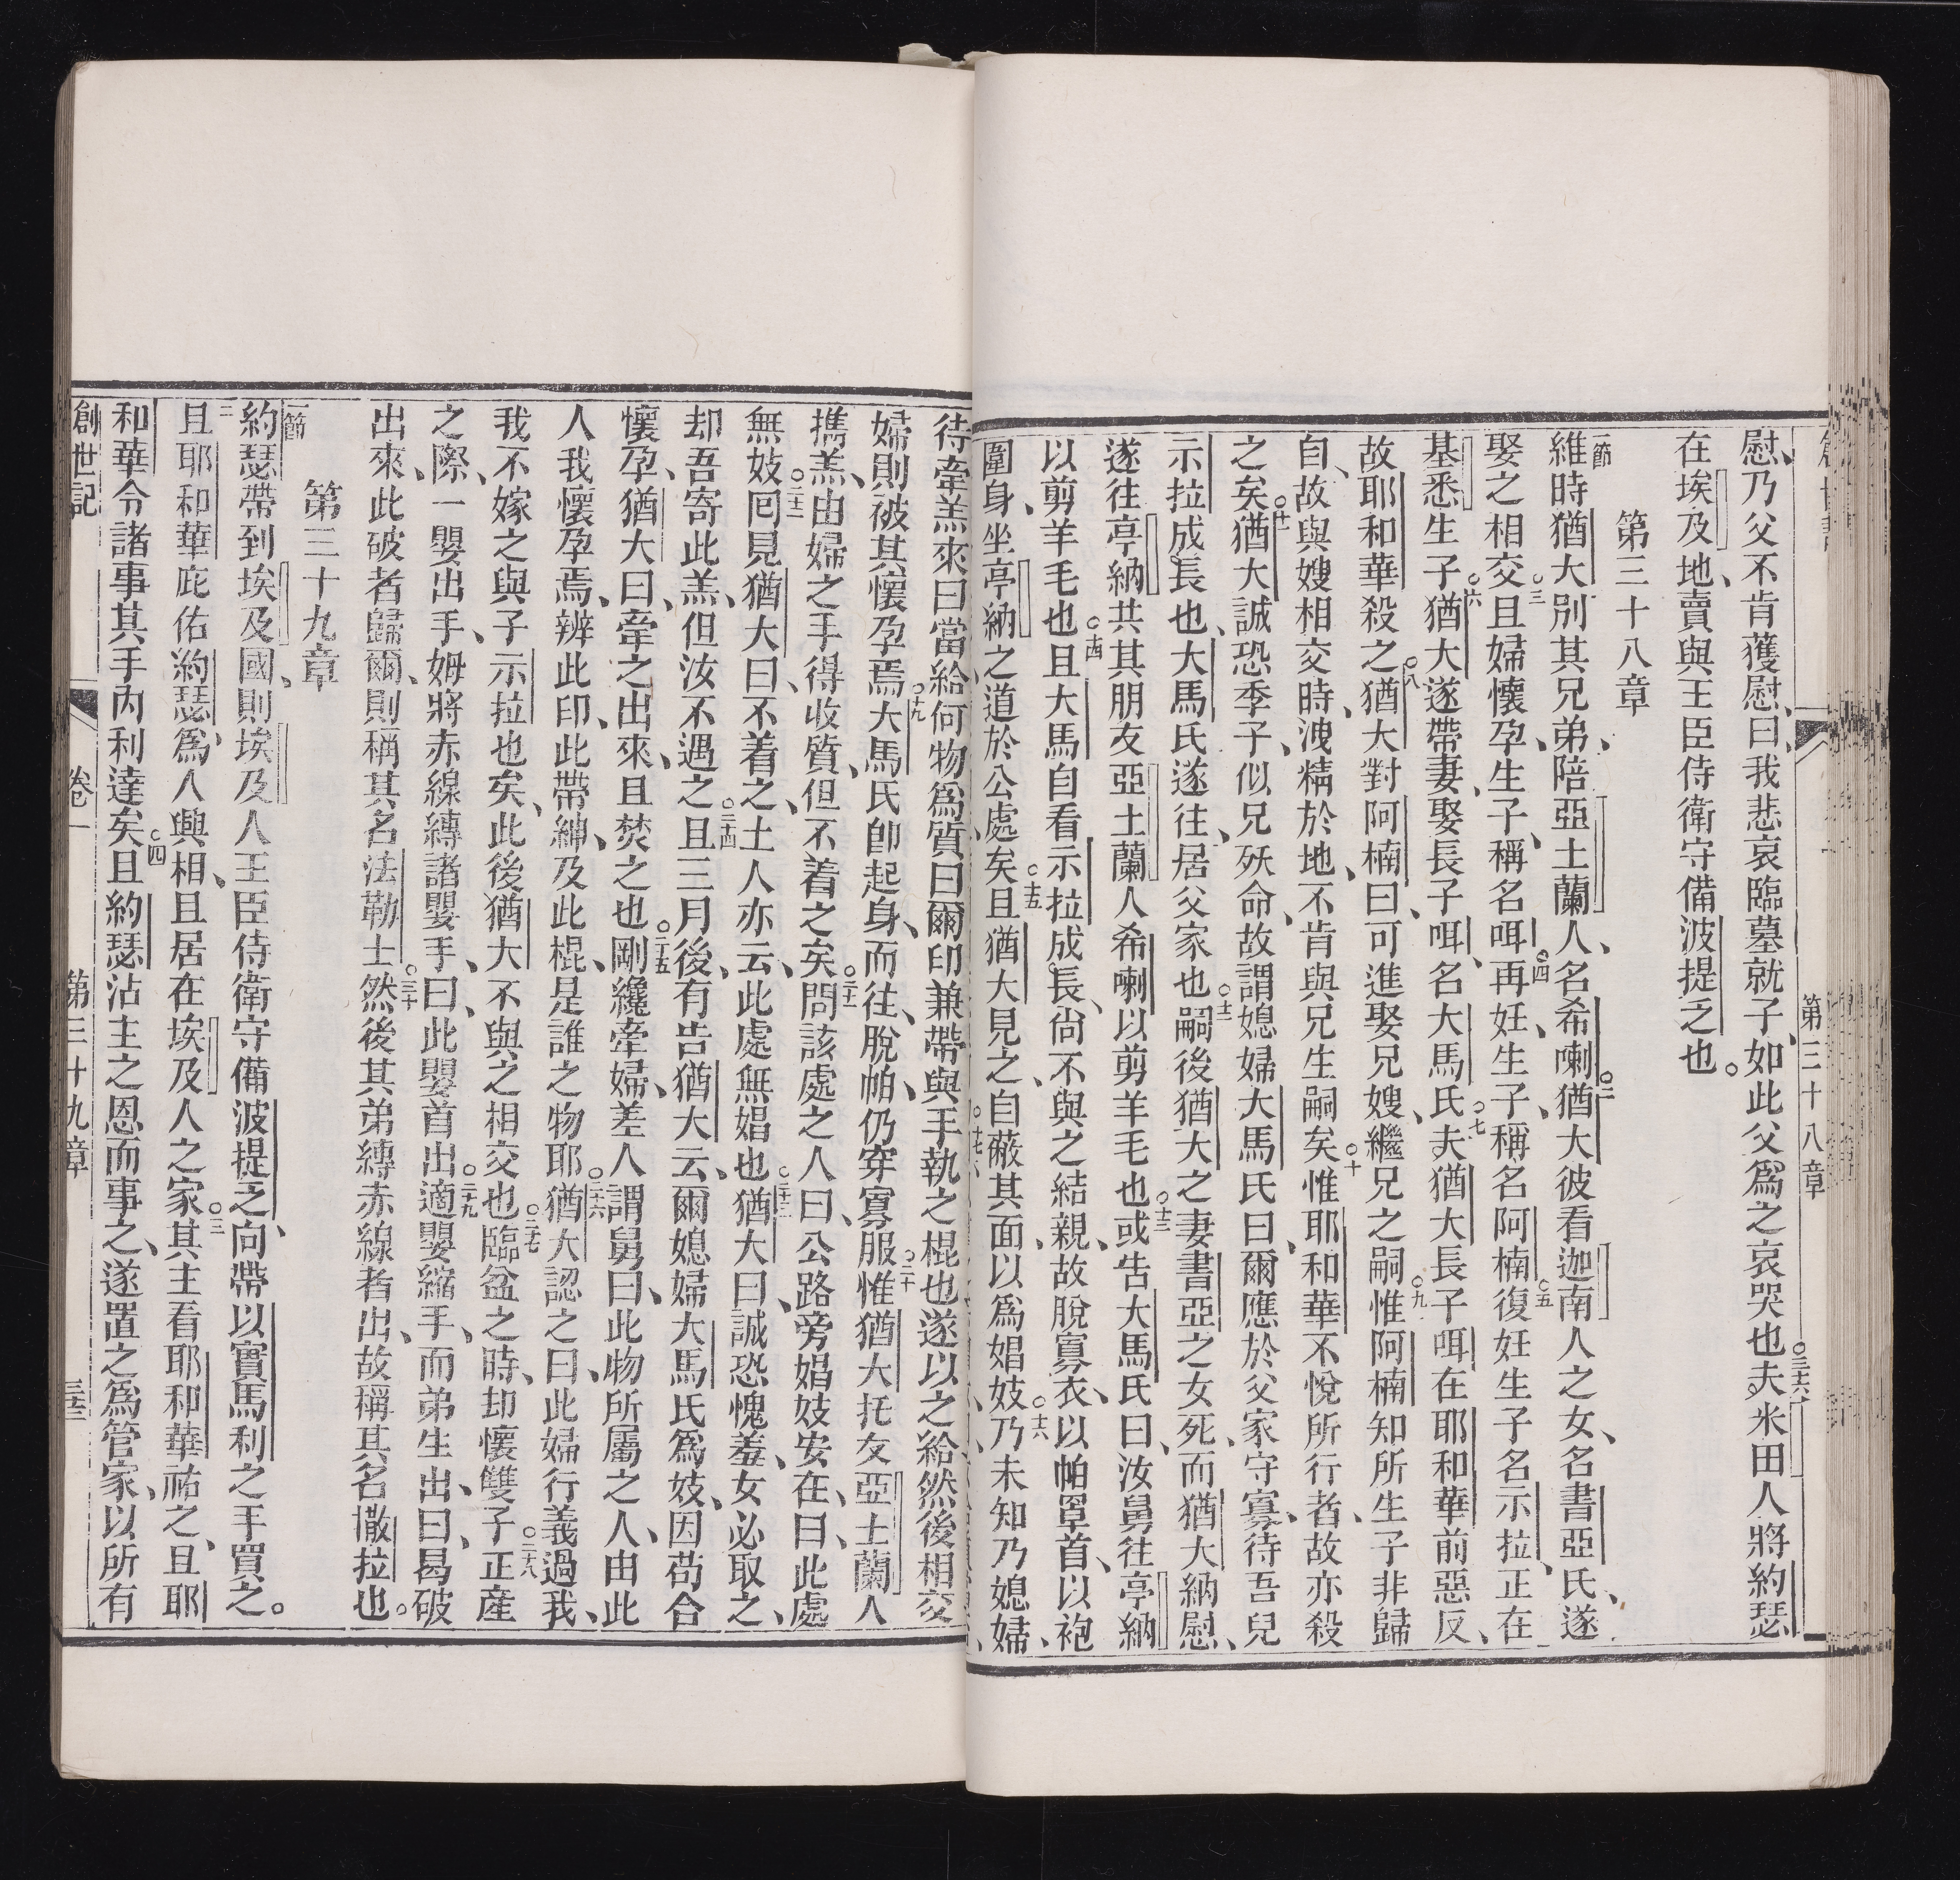 第三十八章
慰、乃父不肯獲慰、曰、我悲哀臨墓就子、如此父爲之哀哭也○三十六夫米田人將約瑟
在埃及地、賣與王臣侍衛守備波提乏也。
第三十八章
一節維時猶大別其兄弟、陪亞土蘭人、名希喇○二猶大彼看迦南人之女、名書亞氏、遂
娶之相交○三且婦懷孕、生子、稱名咡○四再妊、生子、稱名阿楠○五復妊生子名示拉、正在
基悉生子○六猶大遂帶妻、娶長子咡、名大馬氏○七夫猶大長子咡在耶和華前惡反、
故耶和華殺之○八猶大對阿楠曰、可進娶兄嫂、繼兄之嗣○九惟阿楠知所生子非歸
自、故與嫂相交時、洩精於地、不肯與兄生嗣矣○十惟耶和華不悅所行者、故亦殺
之矣○十一猶大誠恐季子、似兄殀命、故謂媳婦大馬氏曰、爾應於父家守寡、待吾兒
示拉成長也、大馬氏遂往、居父家也○十二嗣後猶大之妻書亞之女死、而猶大納慰、
遂往亭納共其朋友亞土蘭人希喇以剪羊毛也○十三或告大馬氏曰、汝舅往亭納
以剪羊毛也○十四且大馬自看示拉成長、尙不與之結親、故脫寡衣、以帕罩首、以袍
圍身、坐亭納之道於公處矣○十五且猶大見之、自蔽其面、以爲娼妓○十六乃未知乃媳婦、
待牽羔來曰當給何物爲質曰爾印兼帶與手執之棍也遂以之給然後相交
婦則被其懷孕焉○十九大馬氏卽起身、而往、脫帕、仍穿寡服○二十惟猶大托友亞土蘭人
攜羔、由婦之手得收質、但不着之矣○二十一問該處之人曰、公路旁娼妓安在、曰、此處
無妓○二十二回見猶大曰、不着之、土人亦云、此處無娼也○二十三猶大曰、誠恐愧羞、女必取之、
却吾寄此羔、但汝不遇之○二十四且三月後、有告猶大云、爾媳婦大馬氏爲妓、因苟合
懷孕、猶大曰、牽之出來、且焚之也○二十五剛纔牽婦、差人謂舅曰、此物所屬之人、由此
人我懷孕焉、辨此印、此帶紳、及此棍、是誰之物耶○二十六猶大認之曰、此婦行義過我、
我不嫁之與子示拉也矣、此後猶大不與之相交也○二十七臨盆之時、却懷雙子○二十八正產
之際、一嬰出手、姆將赤線縛諸嬰手、曰、此嬰首出○二十九適嬰縮手、而弟生出、曰、曷破
出來、此破者歸爾、則稱其名法勒士○三十然後其弟縛赤線者出、故稱其名撒拉也。
第三十九章
一節約瑟帶到埃及國、則埃及人王臣侍衛守備波提乏、向帶以實馬利之手買之。
二且耶和華庇佑約瑟、爲人興相、且居在埃及人之家○三其主看耶和華祐之、且耶
和華令諸事其手內利達矣○四且約瑟沾主之恩而事之、遂置之爲管家、以所有
創世記 卷一 第三十九章